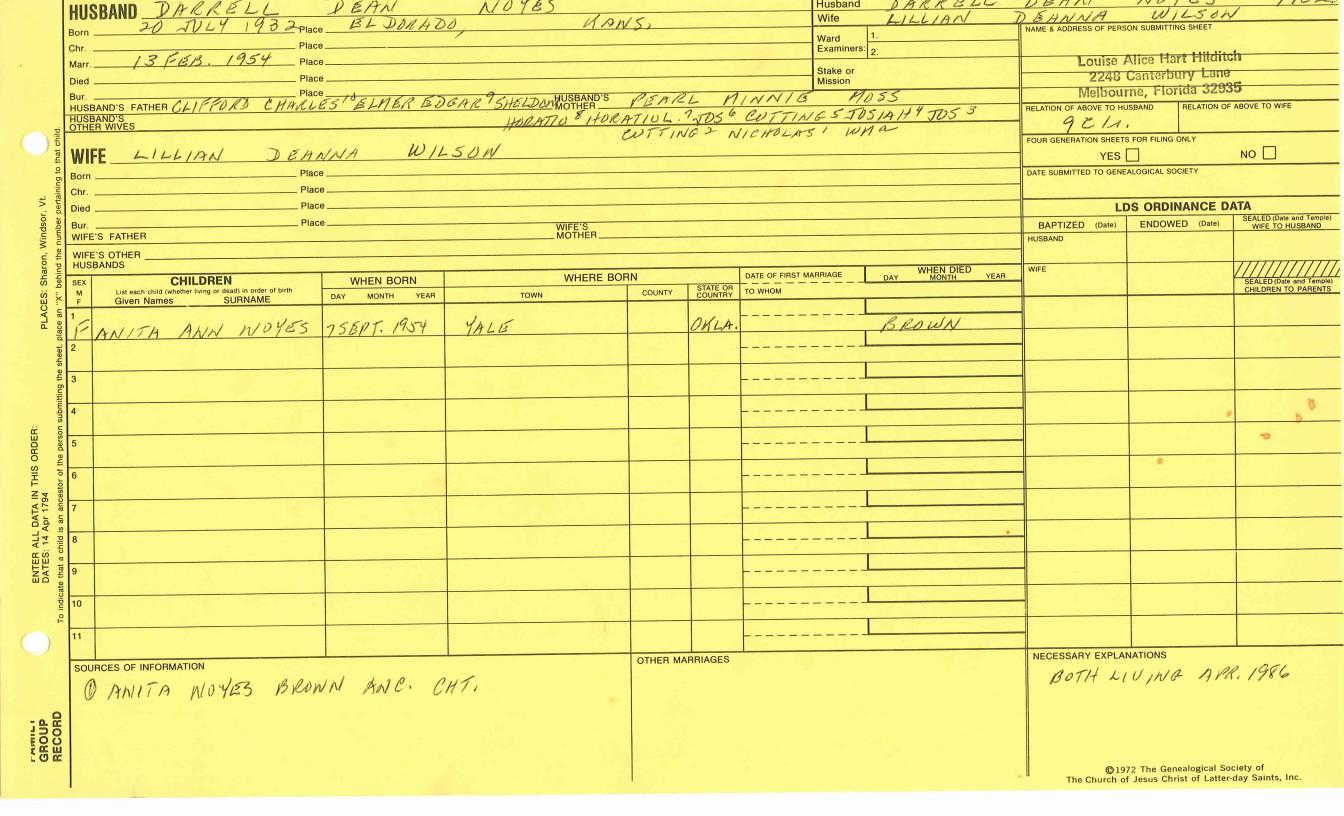 HUSBAND DARRELL DEAN NOYES
Born 20 JULY 1932 Place EL DORADO, KANS,
Chr. Place
Marr. 13 FEB. 1954 Place
Died Place
Bur. Place
HUSBAND'S FATHER CLIFFORD CHARLES 10 ELMER EDGAR 9 SHELDON HUSBAND'S MOTHER PEARL MINNIE MOSS
HORATIO 8 HORATIO L. 7 JOS 6 CUTTING 5 JOSIAH 4 JOS 3
HUSBAND'S OTHER WIVES
CUTTING 2 NICHOLAS 1 WM a
WIFE LILLIAN DEANNA WILSON
Born Place
Chr. Place
Died Place
Bur. Place
WIFE'S FATHER WIFE'S MOTHER
WIFE'S OTHER HUSBANDS
Husband DARRELL DEAN NOYES
Wife LILLIAN DEANNA WILSON
Ward Examiners: 1. 2.
Stake or Mission
NAME & ADDRESS OF PERSON SUBMITTING SHEET
Louise Alice Hart Hilditch
2248 Canterbury Lane
Melbourne, Florida 32935
RELATION OF ABOVE TO HUSBAND RELATION OF ABOVE TO WIFE
FOUR GENERATION SHEETS FOR FILING ONLY
YES NO
DATE SUBMITTED TO GENEALOGICAL SOCIETY
LDS ORDINANCE DATA
BAPTIZED (Date) ENDOWED (Date) SEALED (Date and Temple) WIFE TO HUSBAND
HUSBAND
WIFE
SEALED (Date and Temple) CHILDREN TO PARENTS
SEX M F
CHILDREN
List each child (whether living or dead) in order of birth
Given Names SURNAME
WHEN BORN
DAY MONTH YEAR
WHERE BORN
TOWN COUNTY STATE OR COUNTRY
DATE OF FIRST MARRIAGE
TO WHOM
WHEN DIED
DAY MONTH YEAR
1
F ANITA ANN NOYES 7 SEPT. 1954 YALE OKLA. BROWN
2
3
4
5
6
7
8
9
10
11
SOURCES OF INFORMATION
① ANITA NOYES BROWN ANC. CHT.
OTHER MARRIAGES
NECESSARY EXPLANATIONS
BOTH LIVING APR. 1986
©1972 The Genealogical Society of
The Church of Jesus Christ of Latter-day Saints, Inc.
PLACES: Sharon, Windsor, Vt.
ENTER ALL DATA IN THIS ORDER:
DATES: 14 Apr 1794
To indicate that a child is an ancestor of the person submitting the sheet, place an "X" behind the number pertaining to that child.
FAMILY
GROUP
RECORD